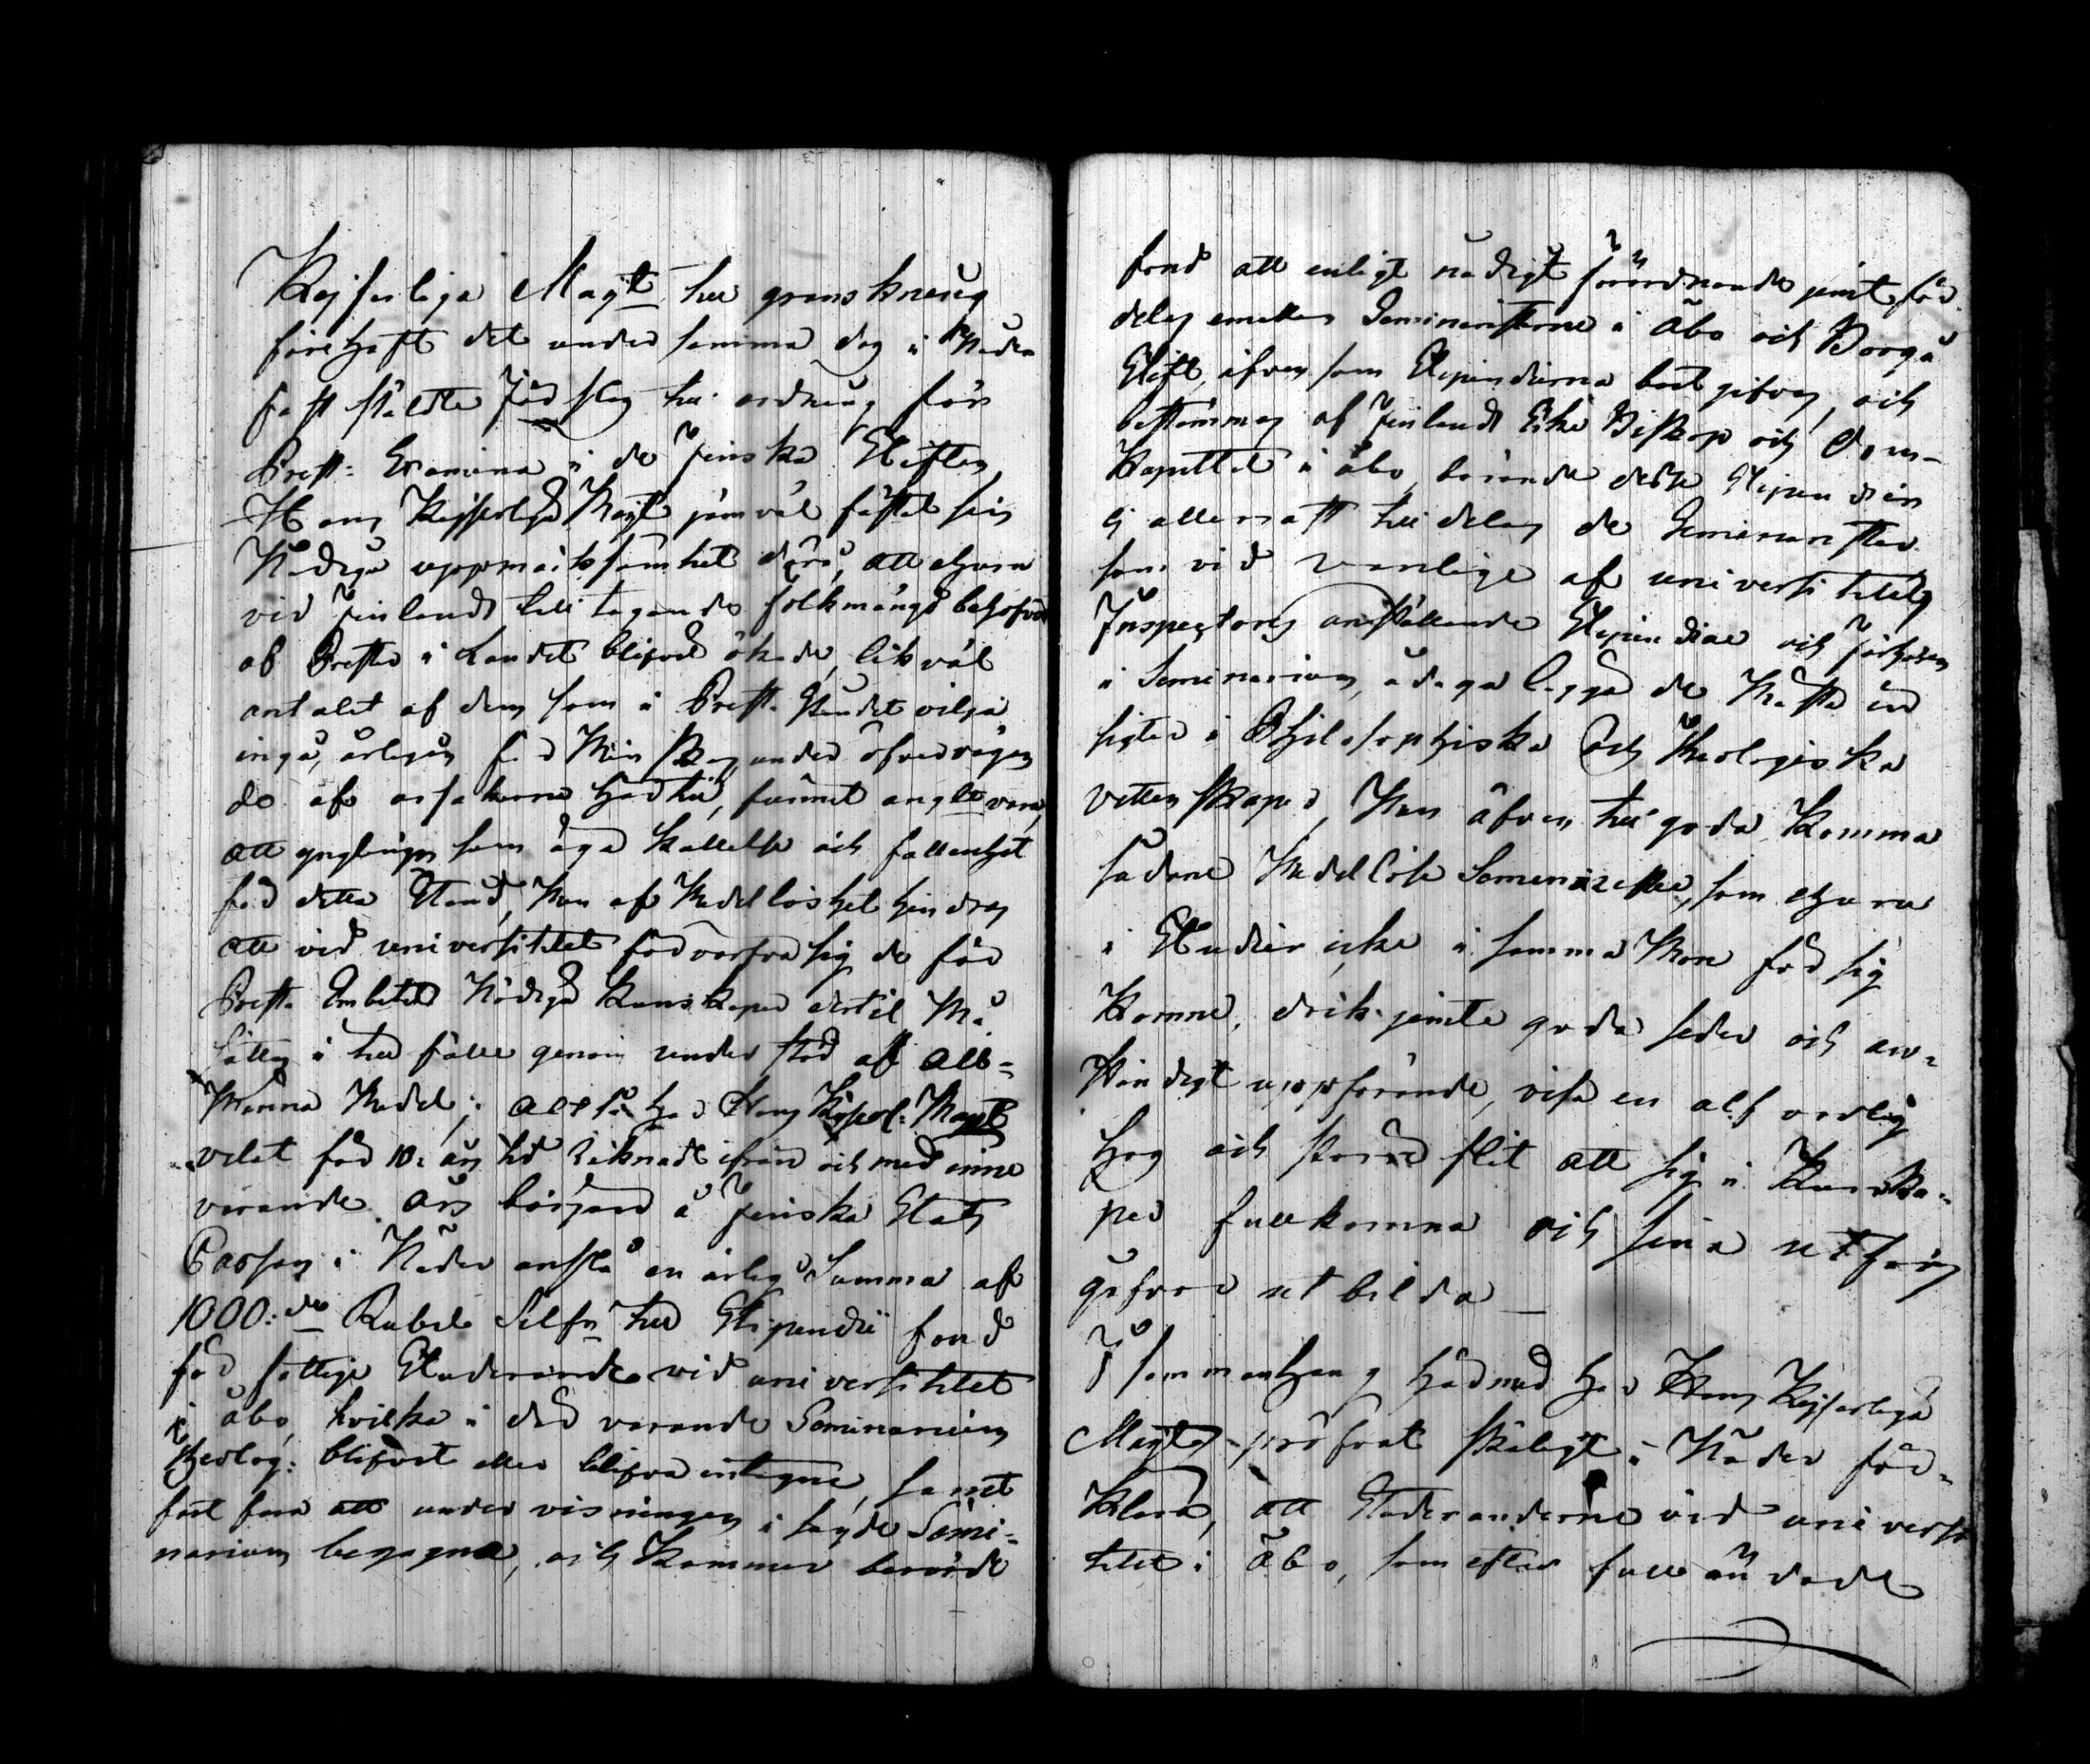 Kejserliga Mag:t till granskning
förehaft det under samma dag i Nåder
fast stäldte förslag till ordning för
Prest: Examina i de finska Stiften
Hans Kejserliga Maj:t jemväl fästat sin
Nådiga uppmärksamhet derå, att ehuru
vid Finlands tilltagande folkmängd behofvet
af Prester i Landet blifvit ökade, likväl
antalet af dem som i Preste Ståndet vilja
ingå, årligen för Minskas, under öfvervägan
de af orsakerne härtill, funnit angel. vara,
att ynglingar som äga kallelse och fallenhet
för detta Stånd, Men af Medellöshet hindras
att vid universitetet förvärfva sig de för
Preste Embetet Nödiga kunskaper dertil Må
sättas i till fälle genom understöd af All-
Männa Medel; Altså har Hans Kejserl: Maj:t
velat för 10: års tid räknadt ifrån och med inne
varande års början å finska Stats
Cassan i Nåder anslå en årlig Summa af
1000: de Rubel Silfver till Stipendii fond
för fattige Studerande vid universitetet
i Åbo, hvilka i der varande Seminarium
theolog: blifvit eller blifva intagne, samt
fort fara att undervisningen i sagde Semi-
narium begagna, och kommer berörde
fond att enligt nådigt förordnande jemt för
delas emellan Seminaristerne i Åbo och Borgå
Stift, äfven som Stipendierna bortgifvas, och
bestämmas af Finlands Erke Biskop och Dom-
Kapitlet i Åbo, börande desse Stipendier
ej allenast till delas de Seminarister
som vid vanlige af universitetets
Inspectorer anställande Stipendiae och förhören
i Seminarium, ådaga lägga de Mästa in
sigter i Philosophiska och Theologiska
vettenskaper, Men äfven till godo komma
sådane Medellöse Seminarister, som ehuru
i Studier icke i samma Mon för sig
komne, dock jemte goda seder och an-
ständigt uppförande, visa en alfvarlig
hog och spord flit att sig i Kunska-
per fullkomna och sina utförs
gåfvor utbilda
I sammanhang härmed har Hans Kejserliga
Maj:t pröfvat skäligt i Nåder för-
klara, att Studeranderne vid universi
tetet i Åbo, som efter fulländade